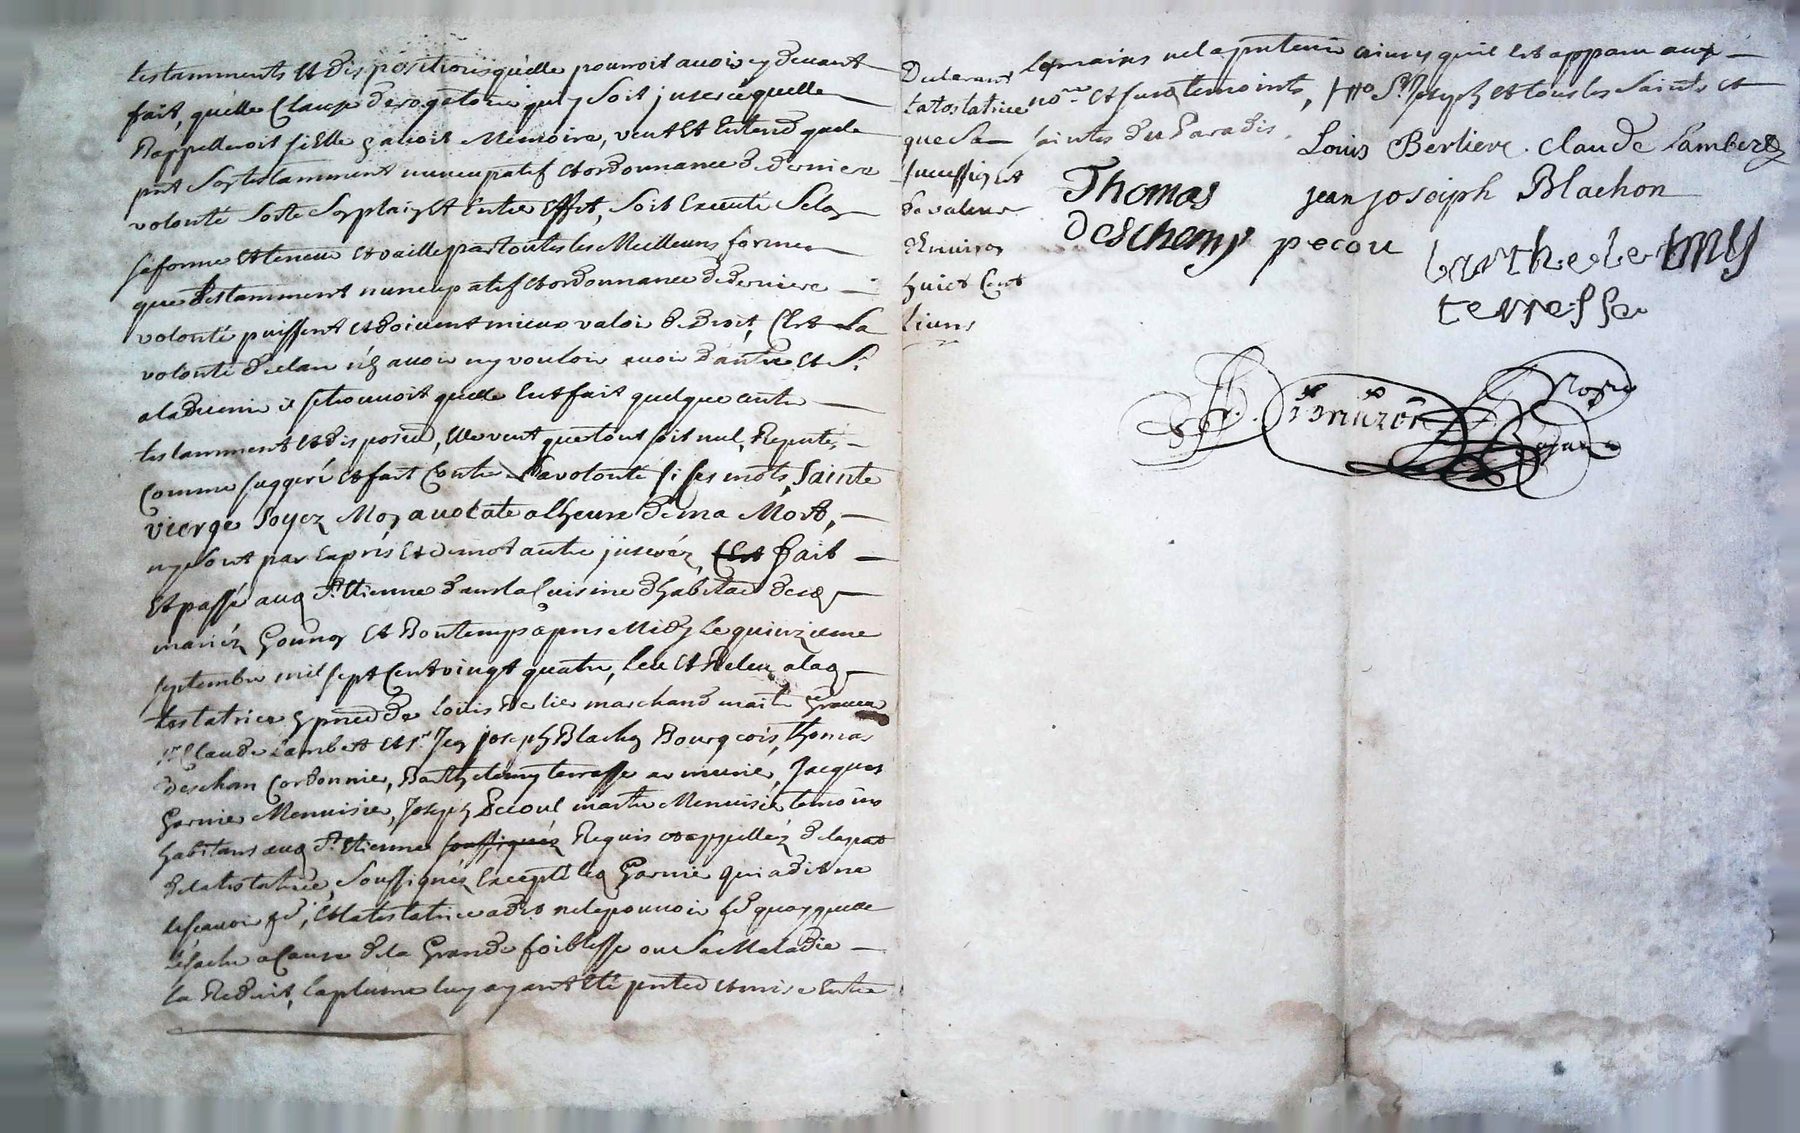 testamments et dispositions qu'elle pourroit avoir cy devant
fait, quelle Clause derogatoire quy soit inserée quelle
Rappelleroit si Elle en avoit Memoire, veut et Entend que le
pnt Son testamment nuncupatif et ordonnance de derniere
volonté Sorte Son plain et Entier Effet, Soit Executé Selon
Sa forme et teneur et vaille par toutes les Meilleures formes
que testamment nuncupatif et ordonnance de derniere
volonté puissent et doivent mieux valoir de Droit, C'est La
volonté avoir ny vouloir avoir d'autre Et Si
a la venir il se trouvoit quelle eut fait quelque autre
testamment et disposition, Elle veut que tout soit nul, Reputé
Comme suggeré et fait Contre Sa volonté si ses mots, Sainte
vierge Soyez Mon avocate a l'heure de ma Mort,
ny sont par Exprés et de mot autre inserés, fait
Et passé aud St Etienne dans la Cuisine d'habitaon desd
mariéz Gounon Et Bontemps apres Midy Le quinzieme
septembre mil sept Cent vingt quatre, Leu et Releu a lad
testatrice en pnce de Louis Berlier marchand maitre Graveur
sr Claude Lambert et sr Jean joseph Blachon Bourgeois, thomas
deschan Cordonnier, Barthelemy terrasse armurié, Jacques
Garnier Menuisier, Joseph Pecoul maitre Menuisier temoins
habitans aud St Etienne soussignés Requis et appelléz de la part
de la testatrice, Soussignéz Excepté led Garnier qui a dit ne
le scavoir fe, Et la testatrice a dit ne le pouvoir fe quoy quelle
le sache a Cause de la Grande foiblesse ou Sa Maladie
La Reduit, la plume luy ayant Eté et mise Entre
Declarant
la testatrice
que Sa
succession Et
de valeur
d'Environ
huict Cent
livres
les mains ne la pu tenir ainsy quil Est apparu aux
nore et susd temoints, St joseph et tous les Saints et
saintes du Paradis.
Louis Berliere. Claude Lambert
Thomas
deschamps
jean joseiph Blachon
pecou
barthelemy
terrasse